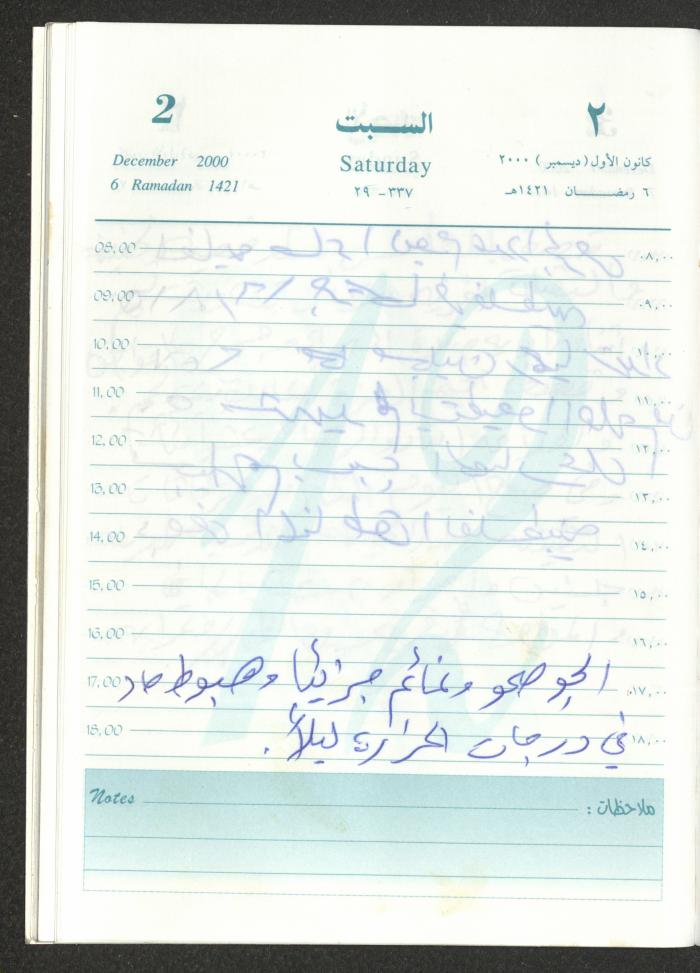 2 السبت ٢
December 2000 Saturday كانون الأول (ديسمبر) ٢٠٠٠
6 Ramadan 1421 ٢٩ - ٣٣٧ ٦ رمضان ١٤٢١هـ
08,00 ٠٨,٠٠
09,00 ٠٩,٠٠
10,00 ١٠,٠٠
11,00 ١١,٠٠
12,00 ١٢,٠٠
13,00 ١٣,٠٠
14,00 ١٤,٠٠
15,00 ١٥,٠٠
16,00 ١٦,٠٠
17,00 الجو صحو وغائم جزئياً وهبوط حاد ١٧,٠٠
18,00 في درجات الحرارة ليلاً. ١٨,٠٠
Notes ملاحظات :